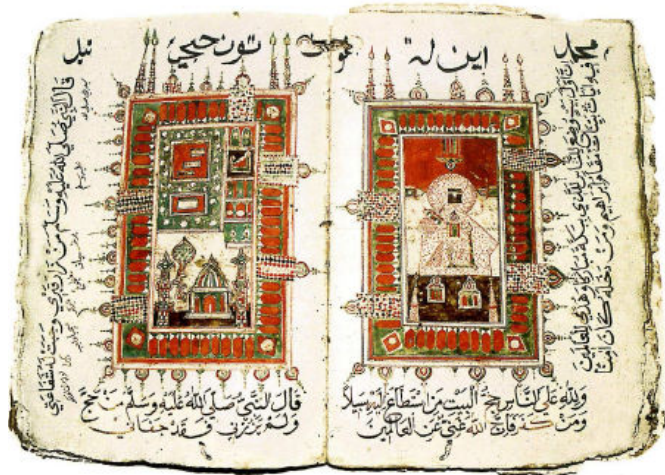 اين له
تون حجي
ان اول بيت وضع للناس للذي ببكة مباركا وهدى للعالمين
فيه ايات بينات مقام ابراهيم ومن دخله كان امنا
ولله علي الناس حج البيت من استطاع اليه سبيلا
ومن كفر فان الله غني عن العالمين
قال النبي صلي الله عليه وسلم من زار قبري وجبت له شفاعتي
قال النبي صلي الله عليه وسلم من حج
ولم يزرني فقد جفاني